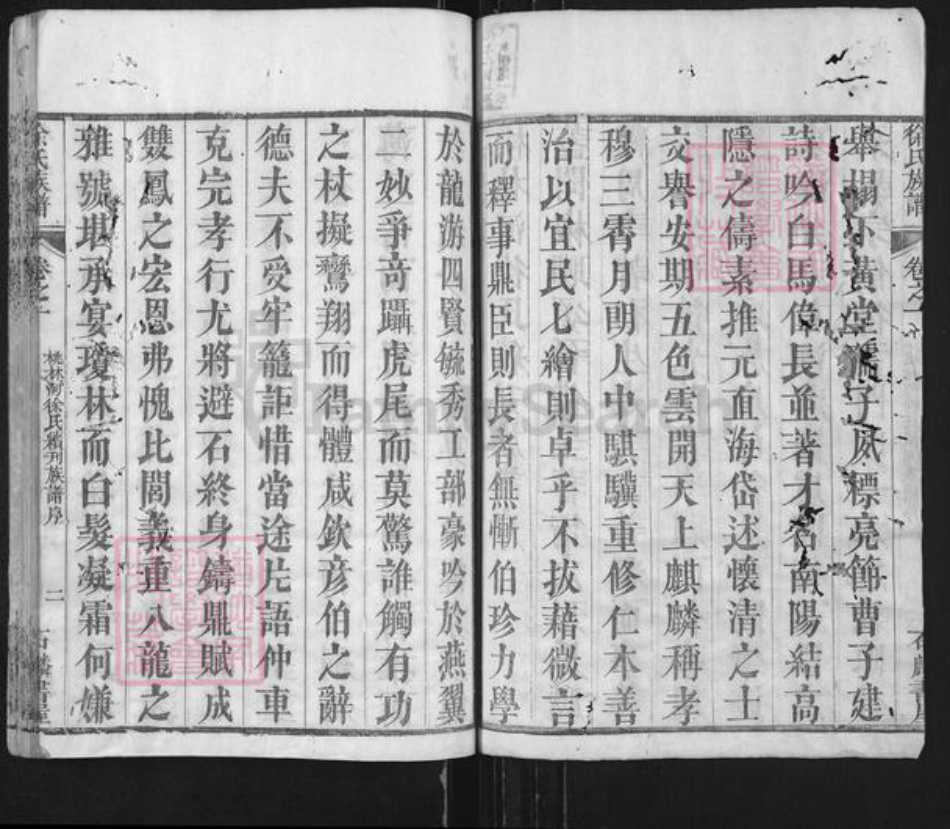 徐氏族譜 卷之一
舉榻不黃堂孺子夙標亮節曹子建
詩吟白馬偉長並著才名南陽結高
隱之儔素推元直海岱述懷清之士
交譽安期五色雲開天上麒麟稱孝
穆三霄月朗人中騏驥重修仁本善
治以宜民七繪則卓乎不拔藉微言
而釋事鼎臣則長者無慚伯珍力學
於龍游四賢毓秀工部豪吟於燕翼
二妙爭奇躡虎尾而莫驚誰觸有功
之杖擬鸞翔而得體咸欽彥伯之辭
德夫不受牢籠詎惜當途片語仲車
克完孝行尤將避石終身鑄鼎賦成
雙鳳之宏恩弗愧比閭義重八龍之
雅號堪承宴瓊林而白髮凝霜何嫌
徐氏族譜 卷之一 桃林 徐氏續刊族譜序 二